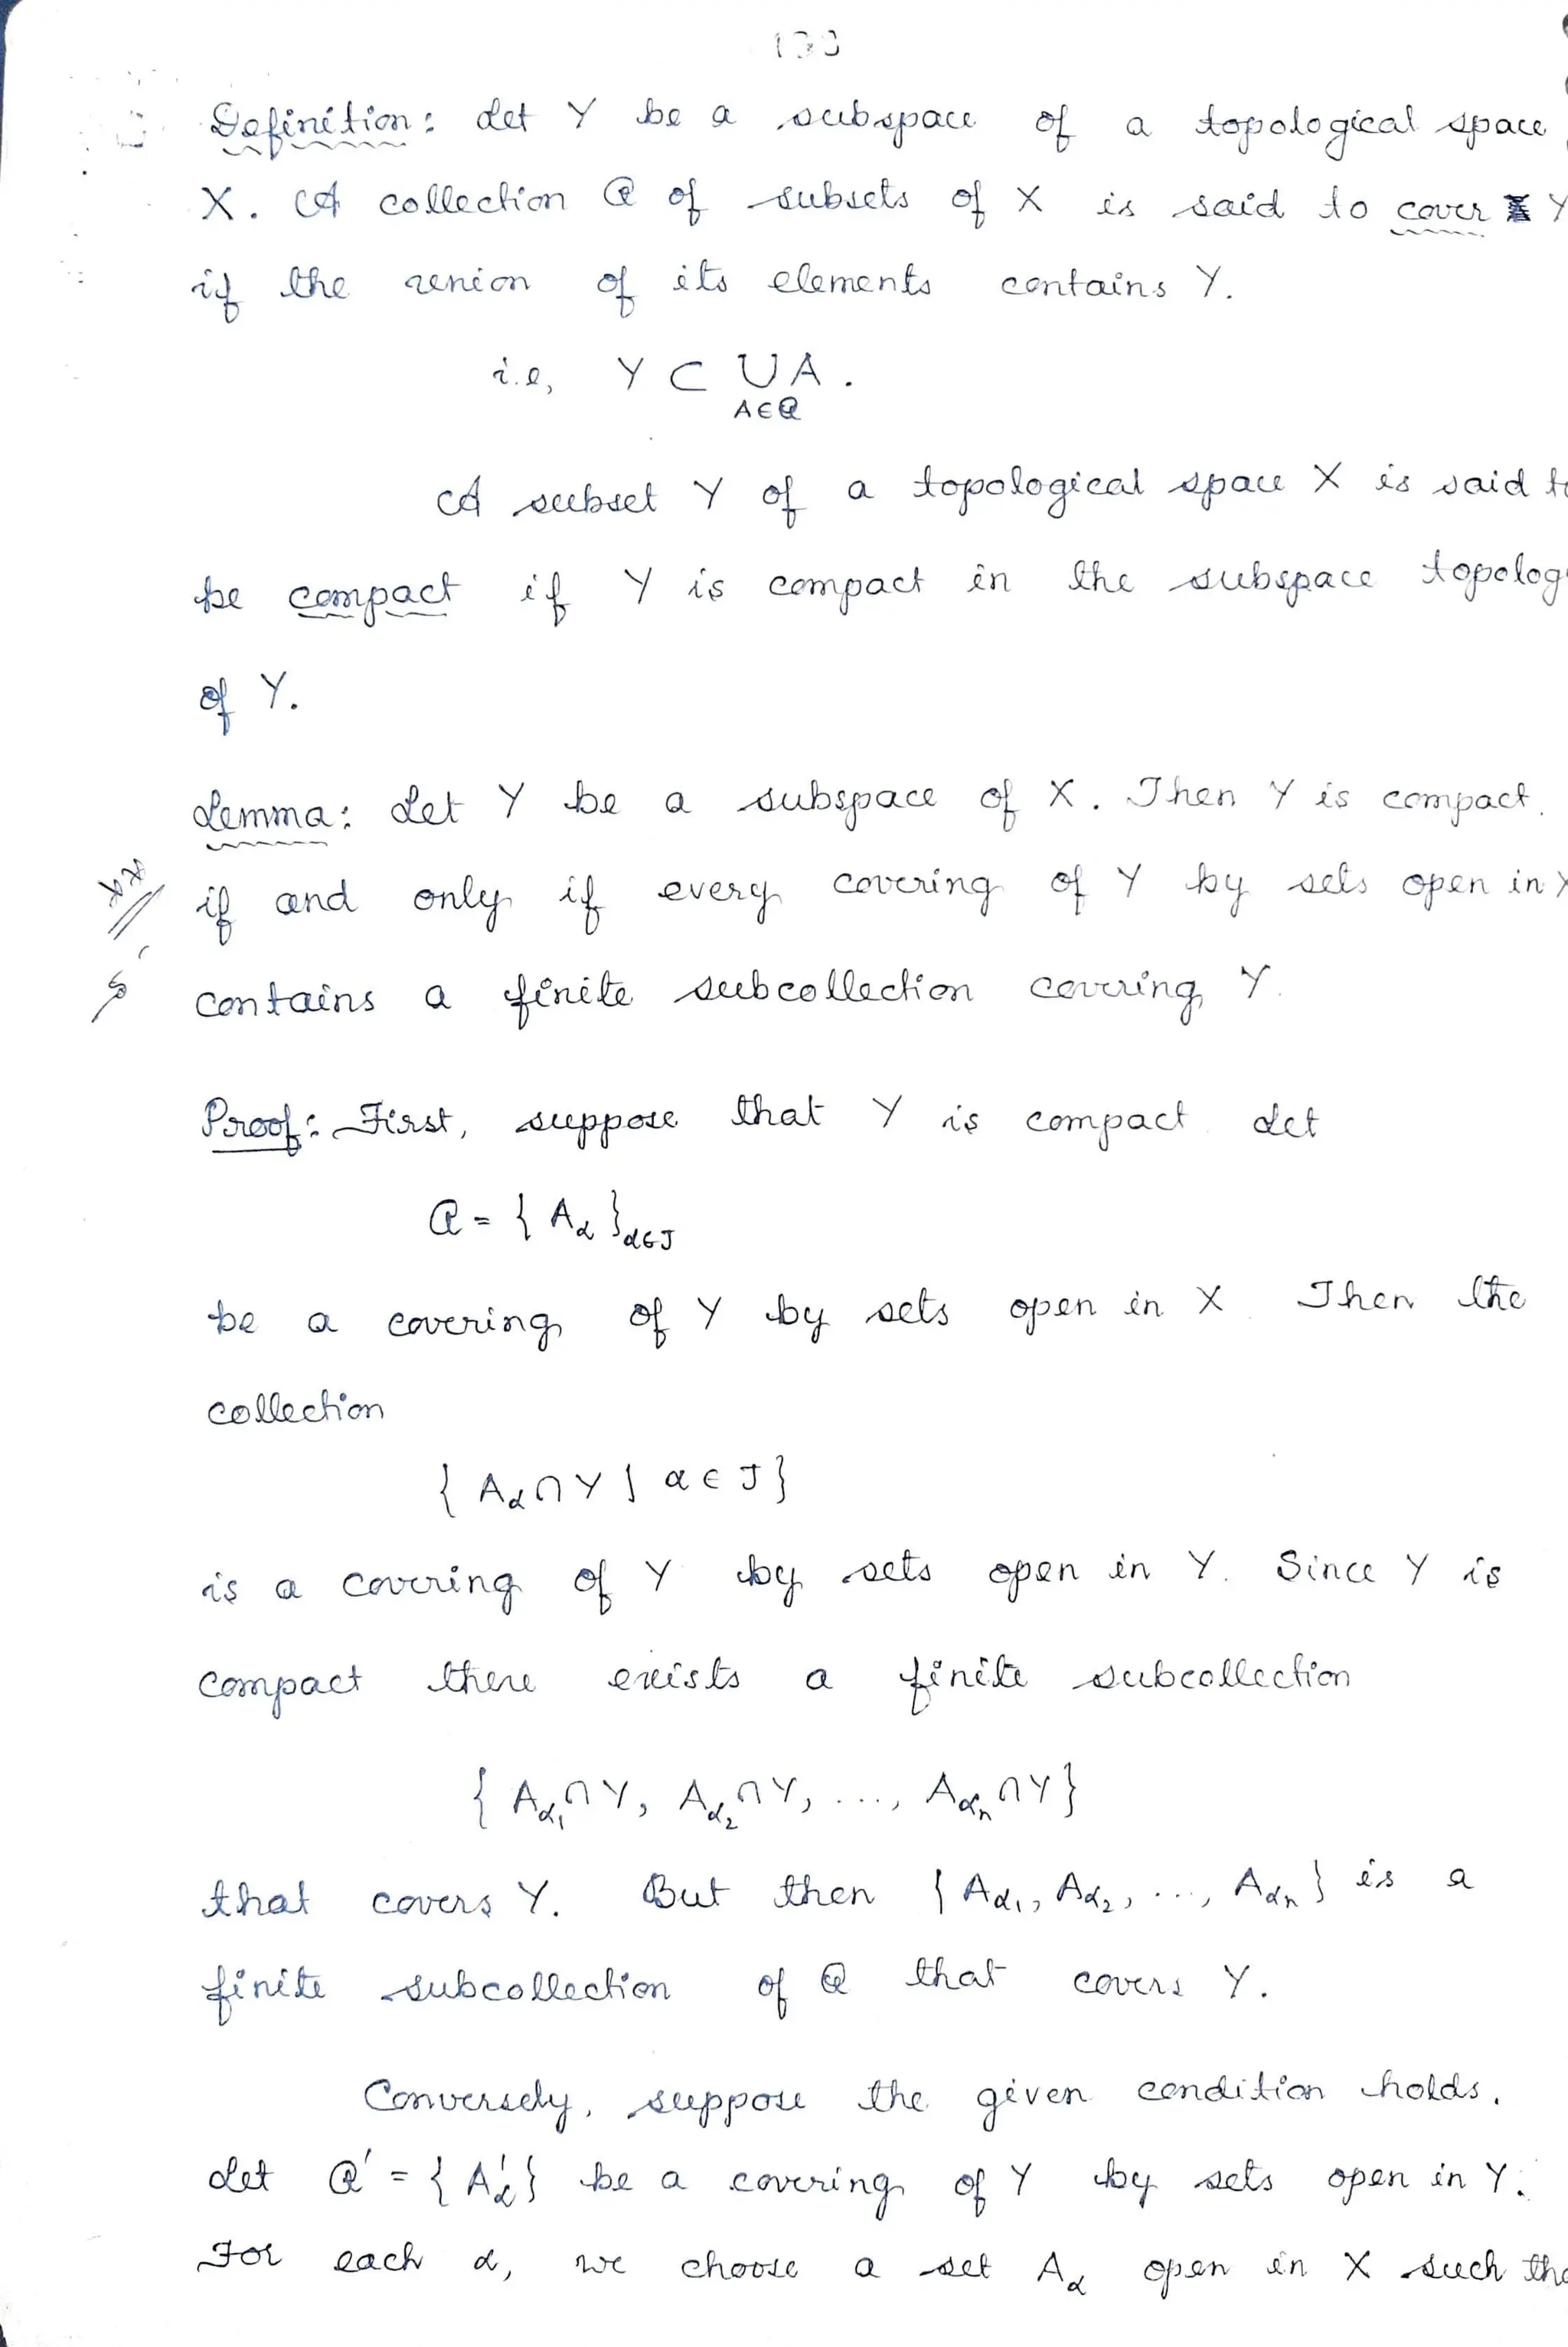 Definition: Let Y be a subspace of a topological space
X. A collection 𝒜 of subsets of X is said to cover Y
if the union of its elements contains Y.
i.e, Y ⊂ ∪ A .
A∈𝒜
A subset Y of a topological space X is said to
be compact if Y is compact in the subspace topolog
of Y.
Lemma: Let Y be a subspace of X. Then Y is compact
if and only if every covering of Y by sets open in X
contains a finite subcollection covering Y.
Proof: First, suppose that Y is compact. Let
𝒜 = { A_α }_α∈J
be a covering of Y by sets open in X Then the
collection
{ A_α ∩ Y | α ∈ J }
is a covering of Y by sets open in Y. Since Y is
compact there exists a finite subcollection
{ A_α₁ ∩ Y, A_α₂ ∩ Y, ..., A_αₙ ∩ Y }
that covers Y. But then { A_α₁, A_α₂, ..., A_αₙ } is a
finite subcollection of 𝒜 that covers Y.
Conversely, suppose the given condition holds.
Let 𝒜' = { A'_α } be a covering of Y by sets open in Y.
For each α, we choose a set A_α open in X such tha